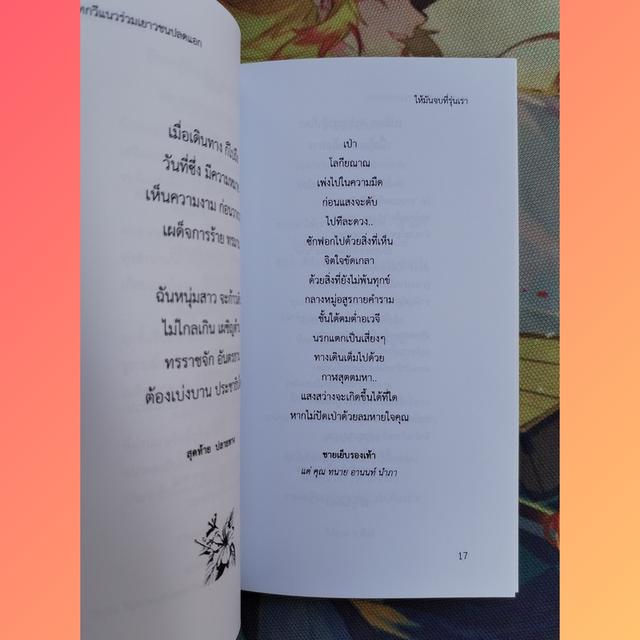 กวีแนวร่วมเยาวชนปลดแอก
เมื่อเดินทาง
วันที่ซึ่ง มีความหมาย
เห็นความงาม ก่อน
เผด็จการร้าย
ฉันหนุ่มสาว จะก้าว
ไม่ไกลเกิน เผชิญ
ทรราชจัก
ต้องเบ่งบาน
สุดท้าย ปลายทาง
ให้มันจบที่รุ่นเรา
เป่า
โลกียณาณ
เพ่งไปในความมืด
ก่อนแสงจะดับ
ไปทีละดวง..
ซักฟอกไปด้วยสิ่งที่เห็น
จิตใจขัดเกลา
ด้วยสิ่งที่ยังไม่พ้นทุกข์
กลางหมู่อสูรกายคำราม
ชั้นใต้ตมต่ำอเวจี
นรกแตกเป็นเสี่ยงๆ
ทางเดินเต็มไปด้วย
กาฬสุตตมหา..
แสงสว่างจะเกิดขึ้นได้ที่ใด
หากไม่ปัดเป่าด้วยลมหายใจคุณ
ชายเย็บรองเท้า
แด่ คุณ ทนาย อานนท์ นำภา
17